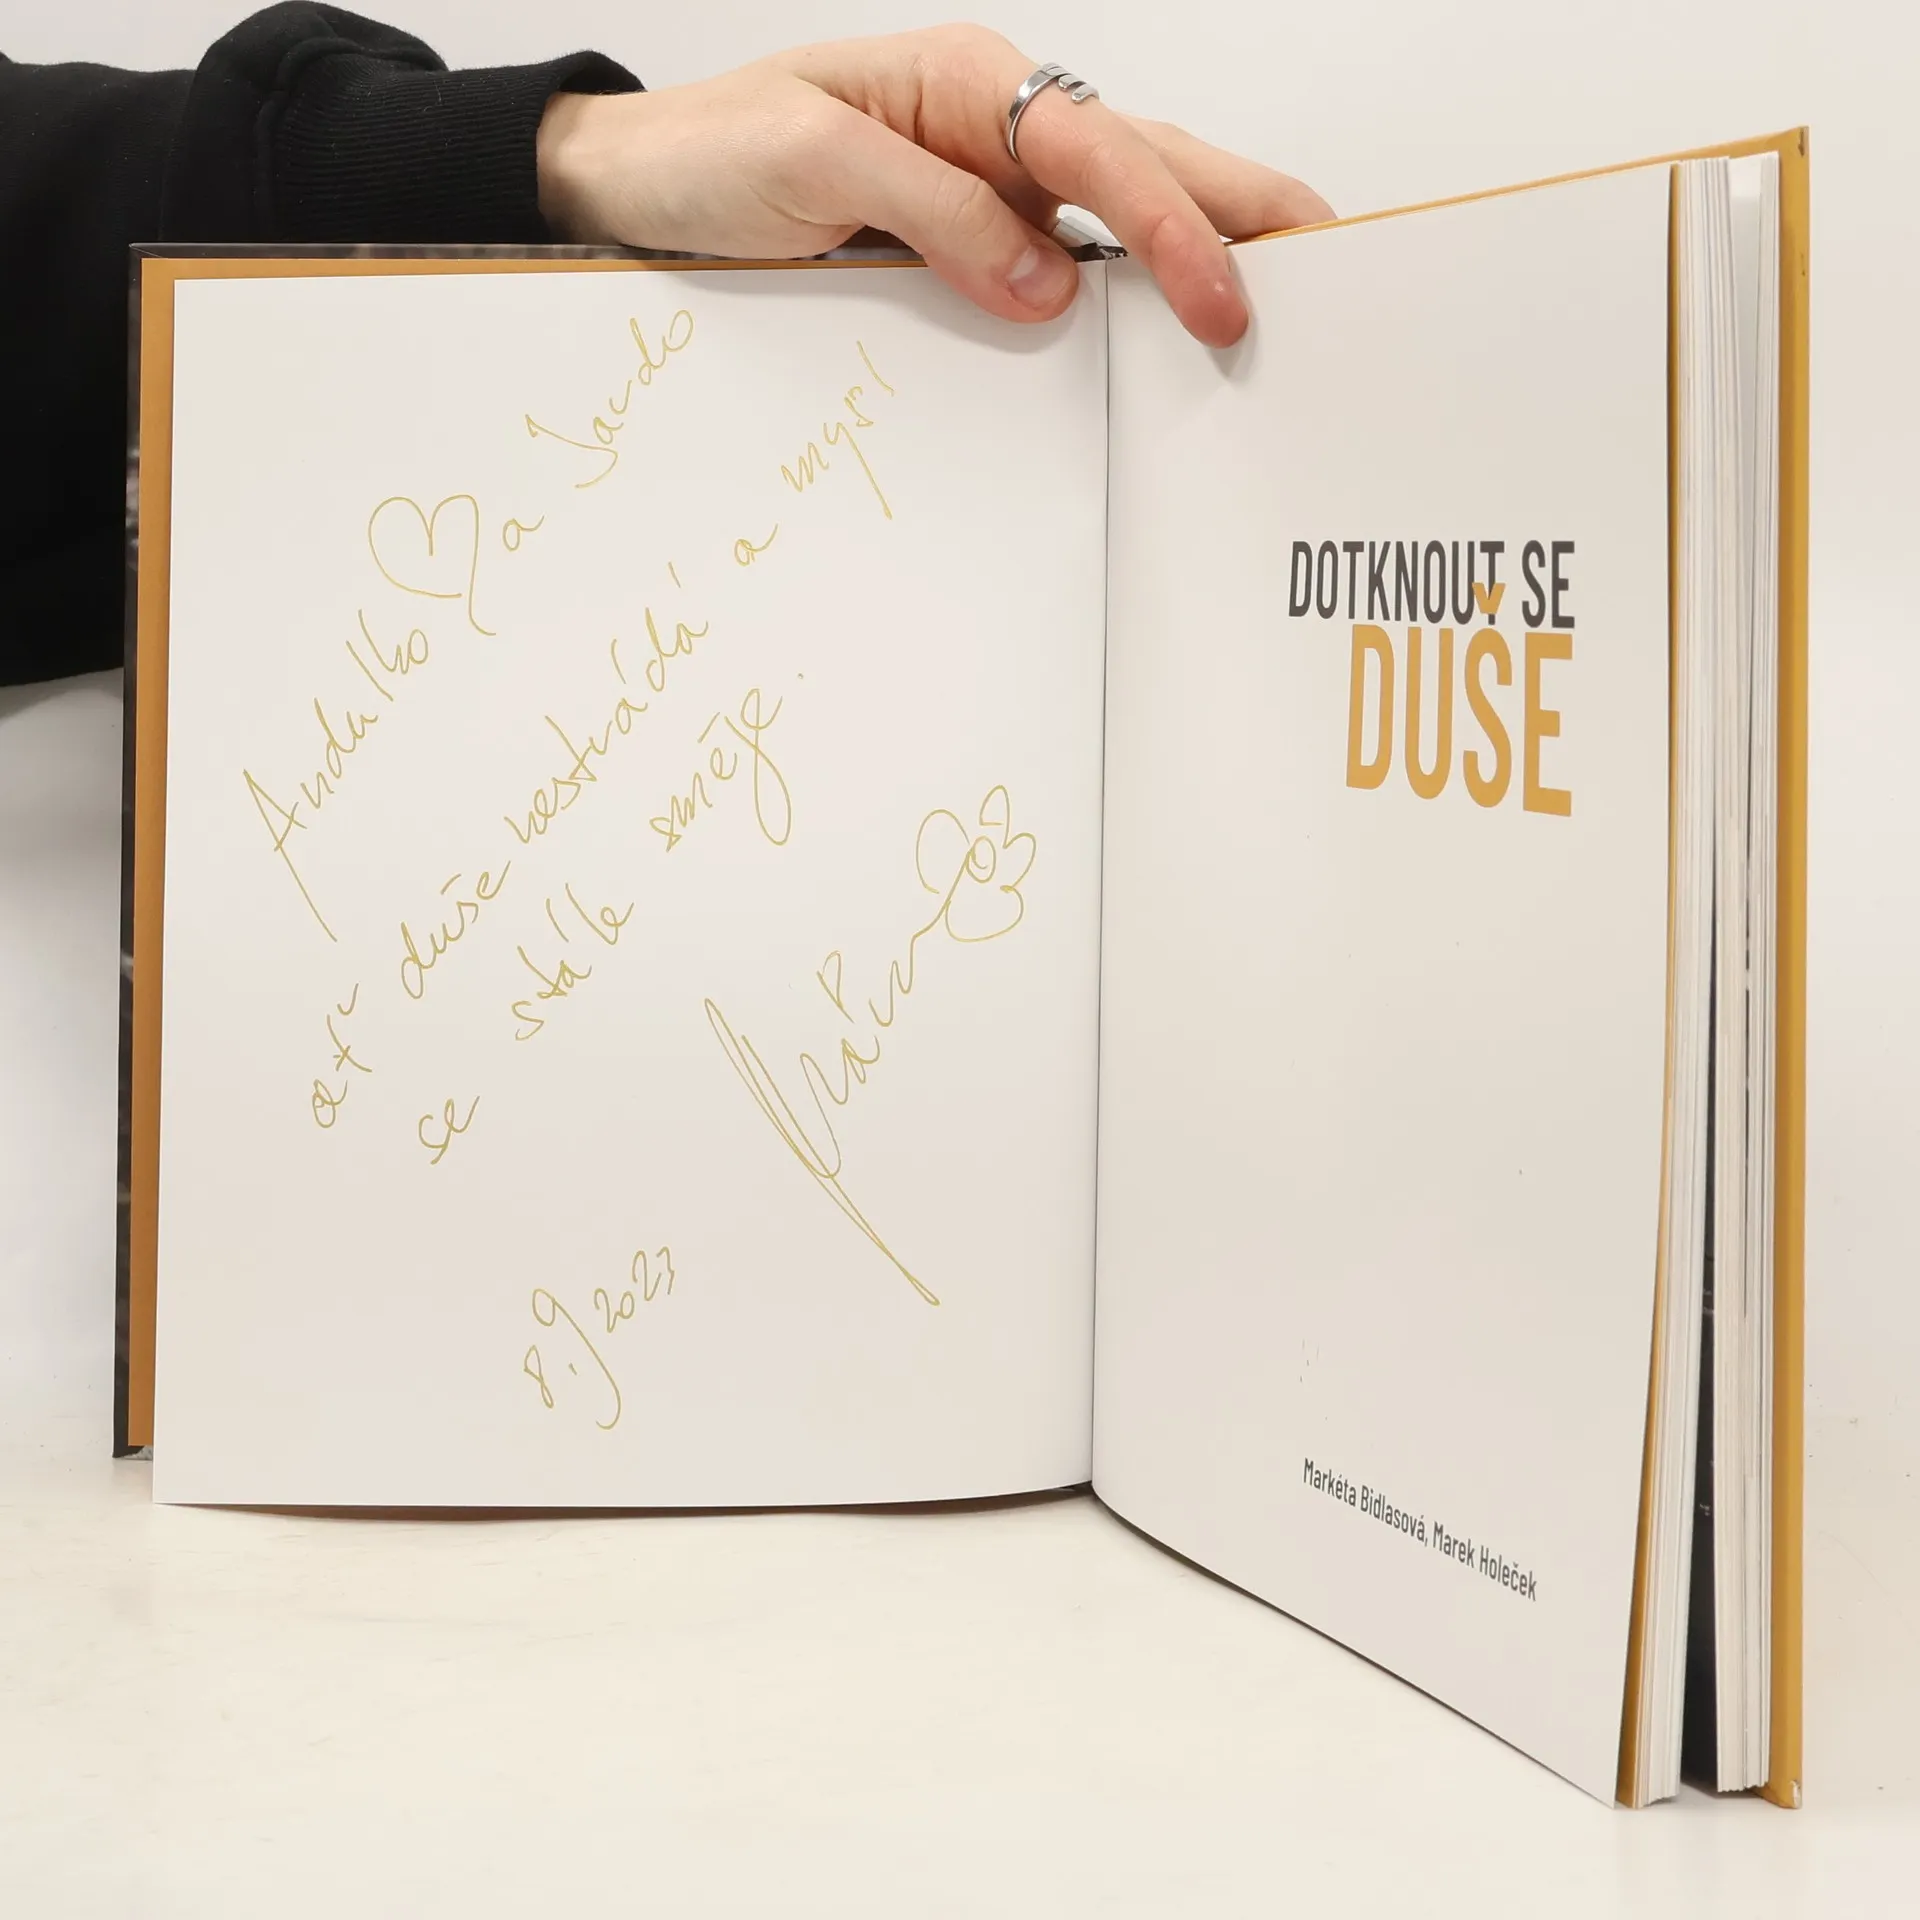 Andulko a Jardo
ať duše nestrádá a mysl
se stále směje.
8.9 2023
DOTKNOUT SE
DUŠE
Markéta Bidlasová, Marek Holeček